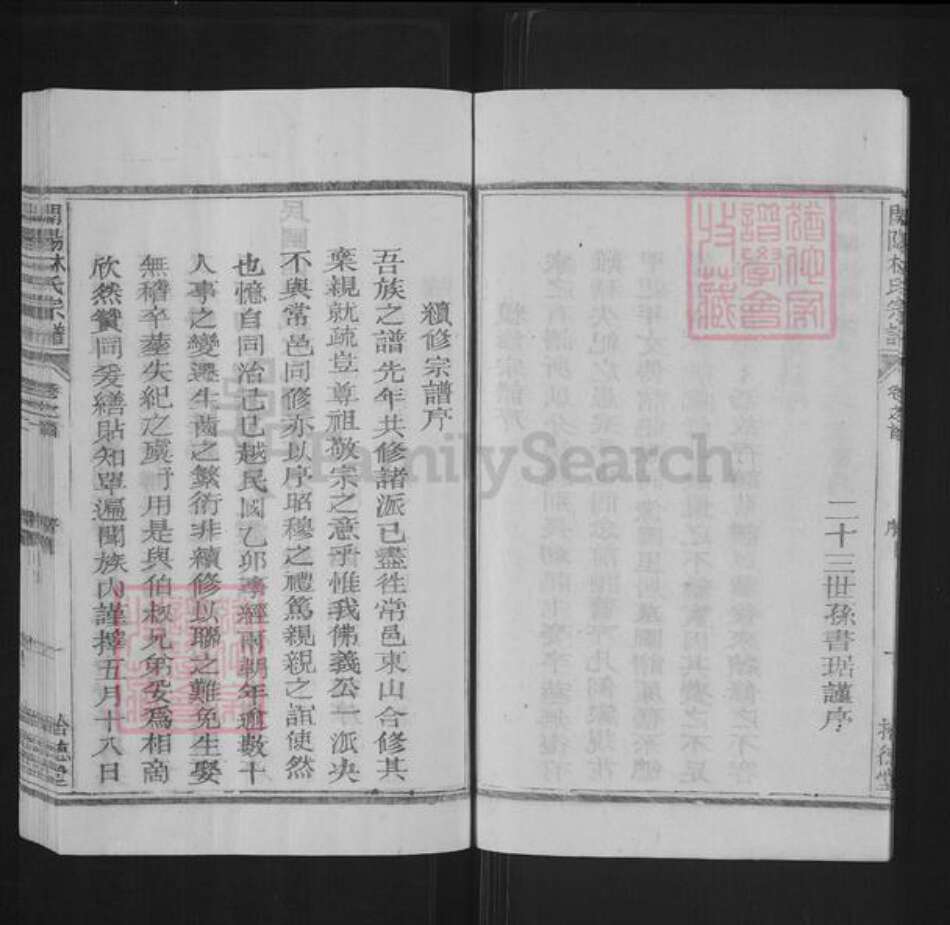 二十三世孫書琚謹序
續修宗譜序
吾族之譜先年共修諸派已盡徃常邑東山合修其
棄親就疏豈尊祖敬宗之意乎惟我佛義公一派决
不與常邑同修亦以序昭穆之禮篤親親之誼使然
也憶自同治己巳越民國乙卯事經兩朝年逾數十
人事之變遷生齒之繁衍非續修以聯之難免生娶
無稽卒塟失紀之虞爰用是與伯叔兄弟妥為相商
欣然贊同爰繕貼知單遍聞族內謹擇五月十八日
林氏宗譜
卷之首
序
FamilySearch